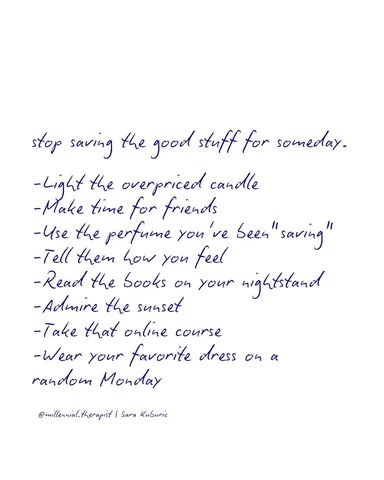 stop saving the good stuff for someday.
-Light the overpriced candle
-Make time for friends
-Use the perfume you've been "saving"
-Tell them how you feel
-Read the books on your nightstand
-Admire the sunset
-Take that online course
-Wear your favorite dress on a
random Monday
@millennial.therapist | Sara Kuburic